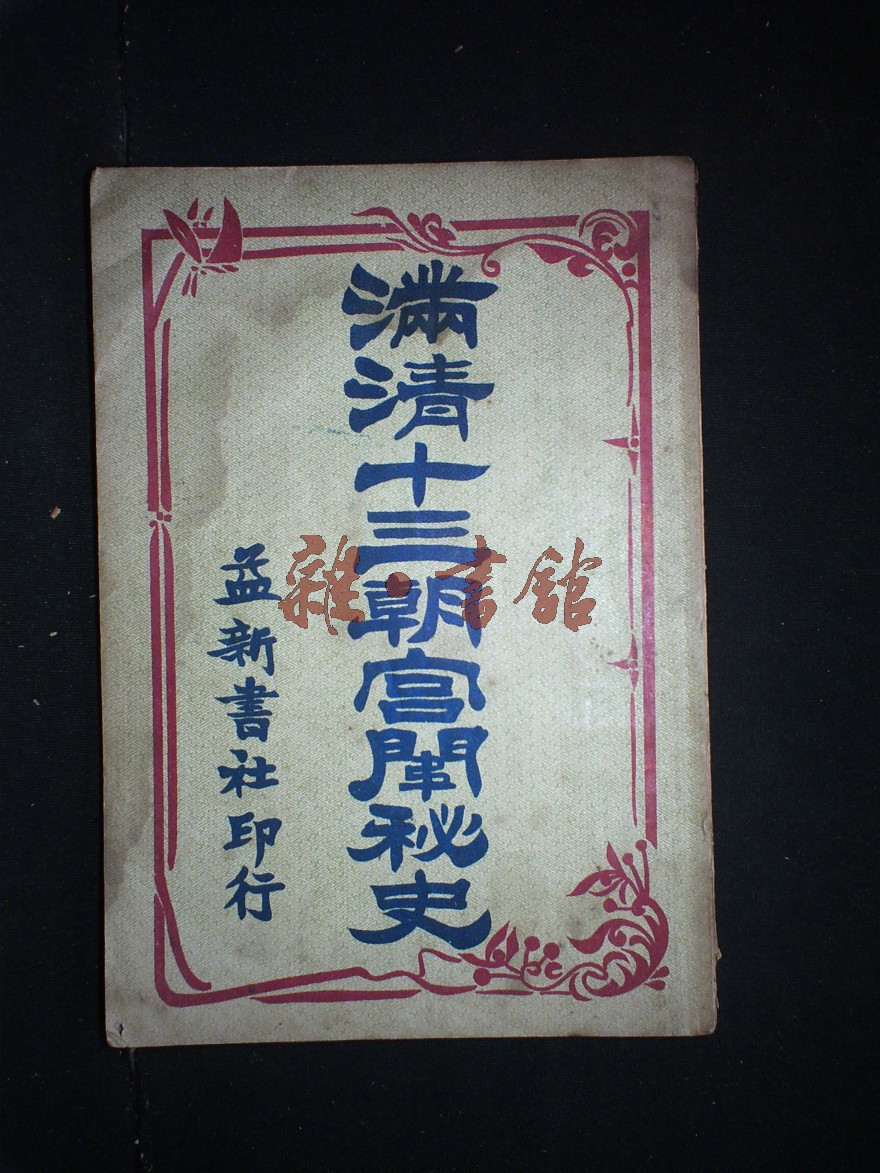 滿清十三朝宮闈秘史
益新書社印行
雜·书館